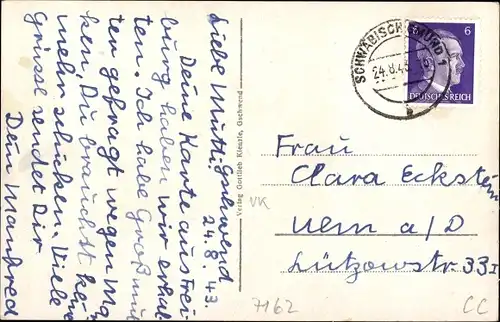 Gschwend
24.8.43.
Liebe Mutti!
Deine Karte aus Frei-
burg haben wir erhal-
ten. Ich habe Großmut-
ter gefragt wegen Mar-
ken, Du brauchst kei
mehr schicken. Viele
Grüsse sendet Dir
Dein Manfred
Verlag Gottlieb Kienzle, Gschwend
SCHWÄBISCH GMÜND 1
24.8.43
b
6 6
DEUTSCHES REICH
Frau
Clara Eckstein
Ulm a/D
Lützowstr 33 I
VK
7162
CC